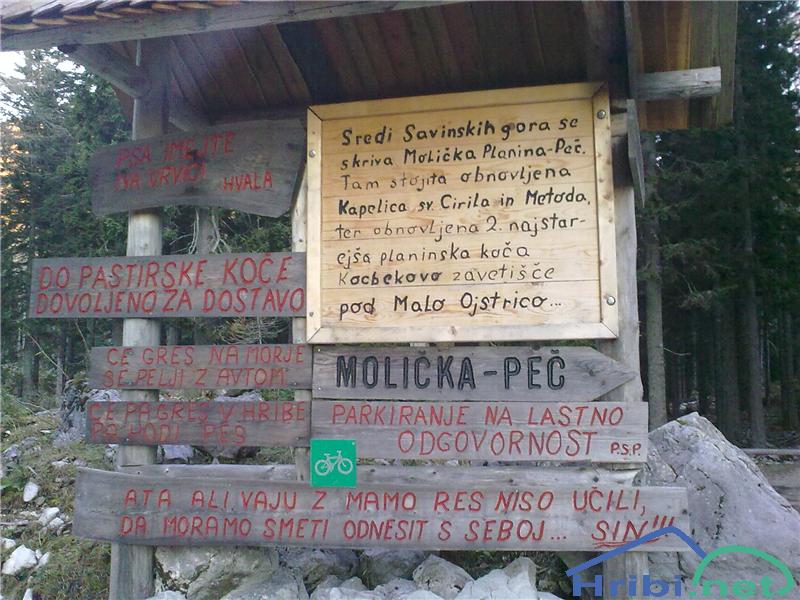 PSA IMEJTE
NA VRVICI HVALA
Sredi Savinskih gora se
skriva Molička Planina-Peč.
Tam stojita obnovljena
Kapelica sv. Cirila in Metoda,
ter obnovljena 2. najstar-
ejša planinska koča
Kocbekovo zavetišče
pod Malo Ojstrico...
DO PASTIRSKE KOČE
DOVOLJENO ZA DOSTAVO
ČE GREŠ NA MORJE
SE PELJI Z AVTOM
ČE PA GREŠ V HRIBE
PA HODI PEŠ
MOLIČKA-PEČ
PARKIRANJE NA LASTNO
ODGOVORNOST P.S.P.
ATA ALI VAJU Z MAMO RES NISO UČILI,
DA MORAMO SMETI ODNESIT S SEBOJ... SIN!!!
Hribi.net